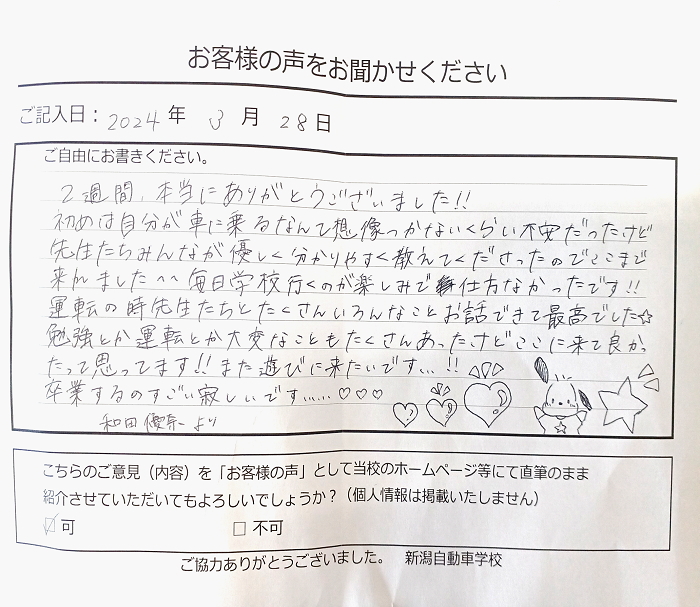 お客様の声をお聞かせください
ご記入日： 2024 年 3 月 28 日
ご自由にお書きください。
2週間、本当にありがとうございました!!
初めは自分が車に乗るなんて想像つかないくらい不安だったけど
先生たちみんなが優しく分かりやすく教えてくださったのでここまで
来れました^^ 毎日学校行くのが楽しみで仕方なかったです!!
運転の時先生たちとたくさんいろんなことお話できて最高でした☆
勉強とか運転とか大変なこともたくさんあったけどここに来て良かっ
たって思ってます!! また遊びに来たいです...!!
卒業するのすごい寂しいです......♡♡♡
和田優奈より
こちらのご意見（内容）を「お客様の声」として当校のホームページ等にて直筆のまま
紹介させていただいてもよろしいでしょうか？（個人情報は掲載いたしません）
☑ 可 □ 不可
ご協力ありがとうございました。 新潟自動車学校